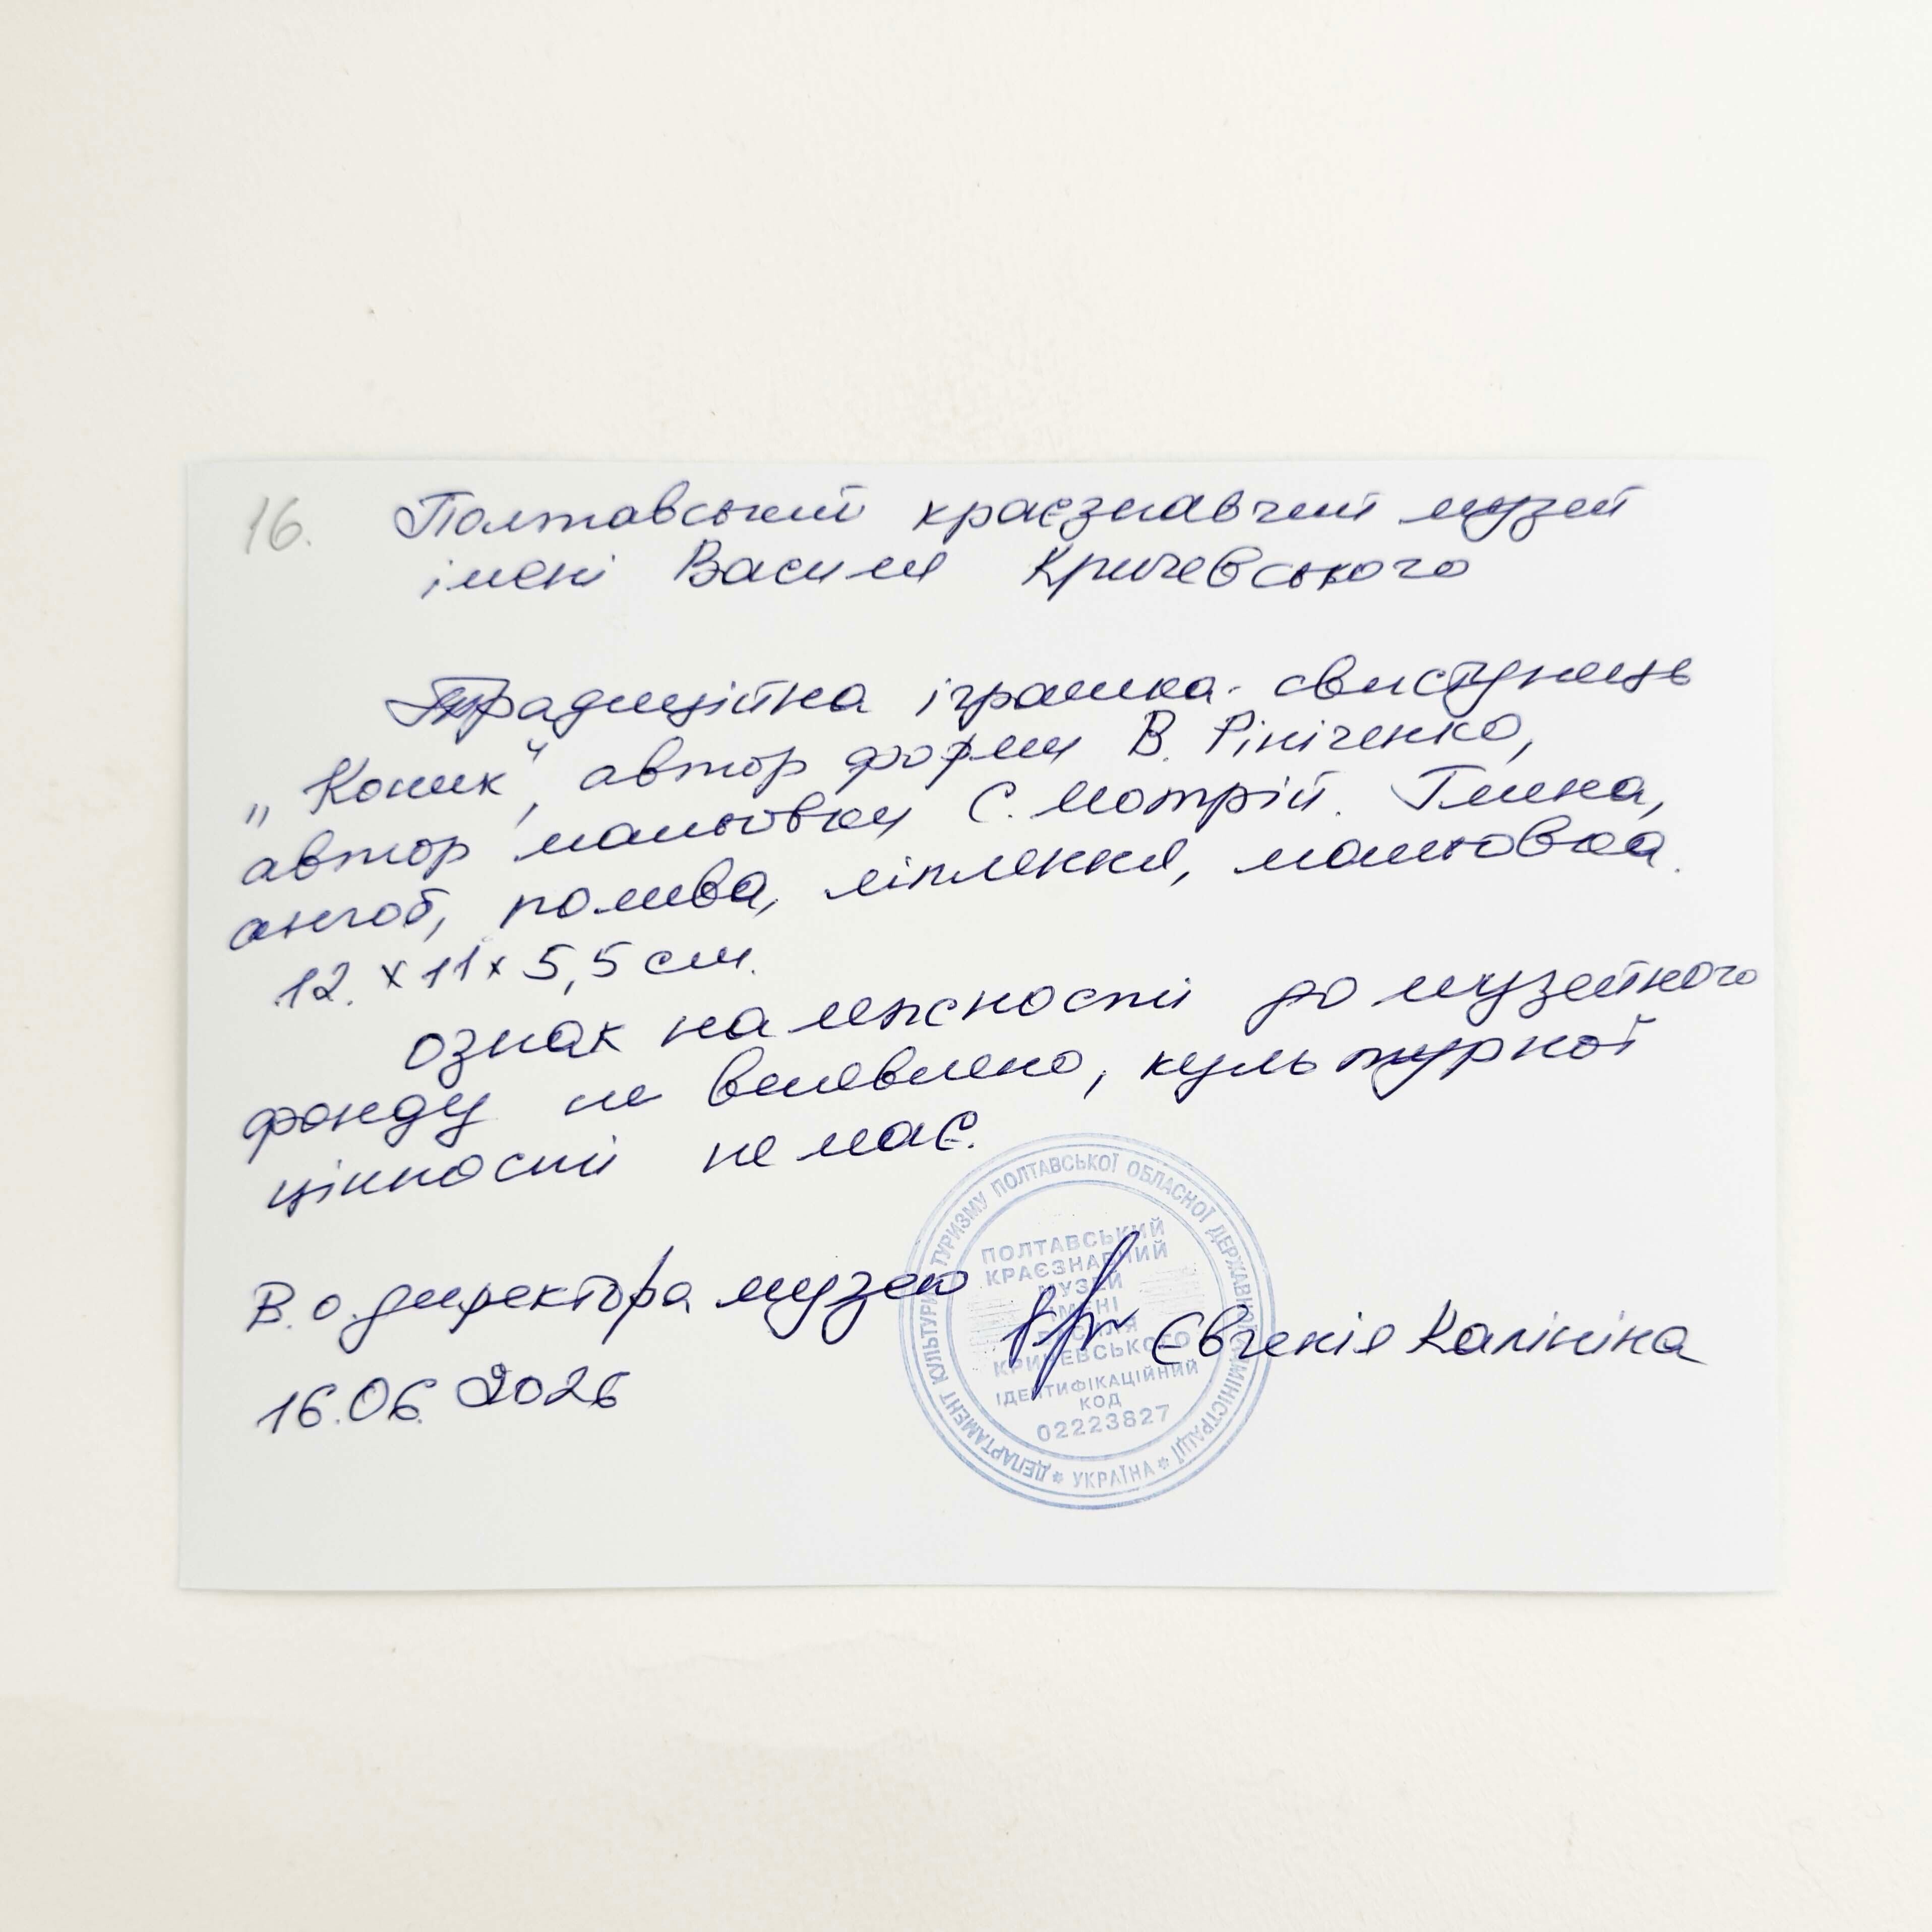 16.
Полтавський краєзнавчий музей
імені Василя Кричевського
Традиційна іграшка-свистунець
„Коник“, автор форми В. Рініченко,
автор мальовки С. Мотрій. Глина,
ангоб, полива, ліплення, мальовка.
12 x 11 x 5,5 см.
Ознак належності до музейного
фонду не виявлено, культурної
цінності не має.
В.о. директора музею Євгенія Калініна
16.06.2026
ДЕПАРТАМЕНТ КУЛЬТУРИ І ТУРИЗМУ ПОЛТАВСЬКОЇ ОБЛАСНОЇ ДЕРЖАВНОЇ АДМІНІСТРАЦІЇ * УКРАЇНА *
ПОЛТАВСЬКИЙ
КРАЄЗНАВЧИЙ
МУЗЕЙ
ІМЕНІ
ВАСИЛЯ
КРИЧЕВСЬКОГО
ІДЕНТИФІКАЦІЙНИЙ
КОД
02223827